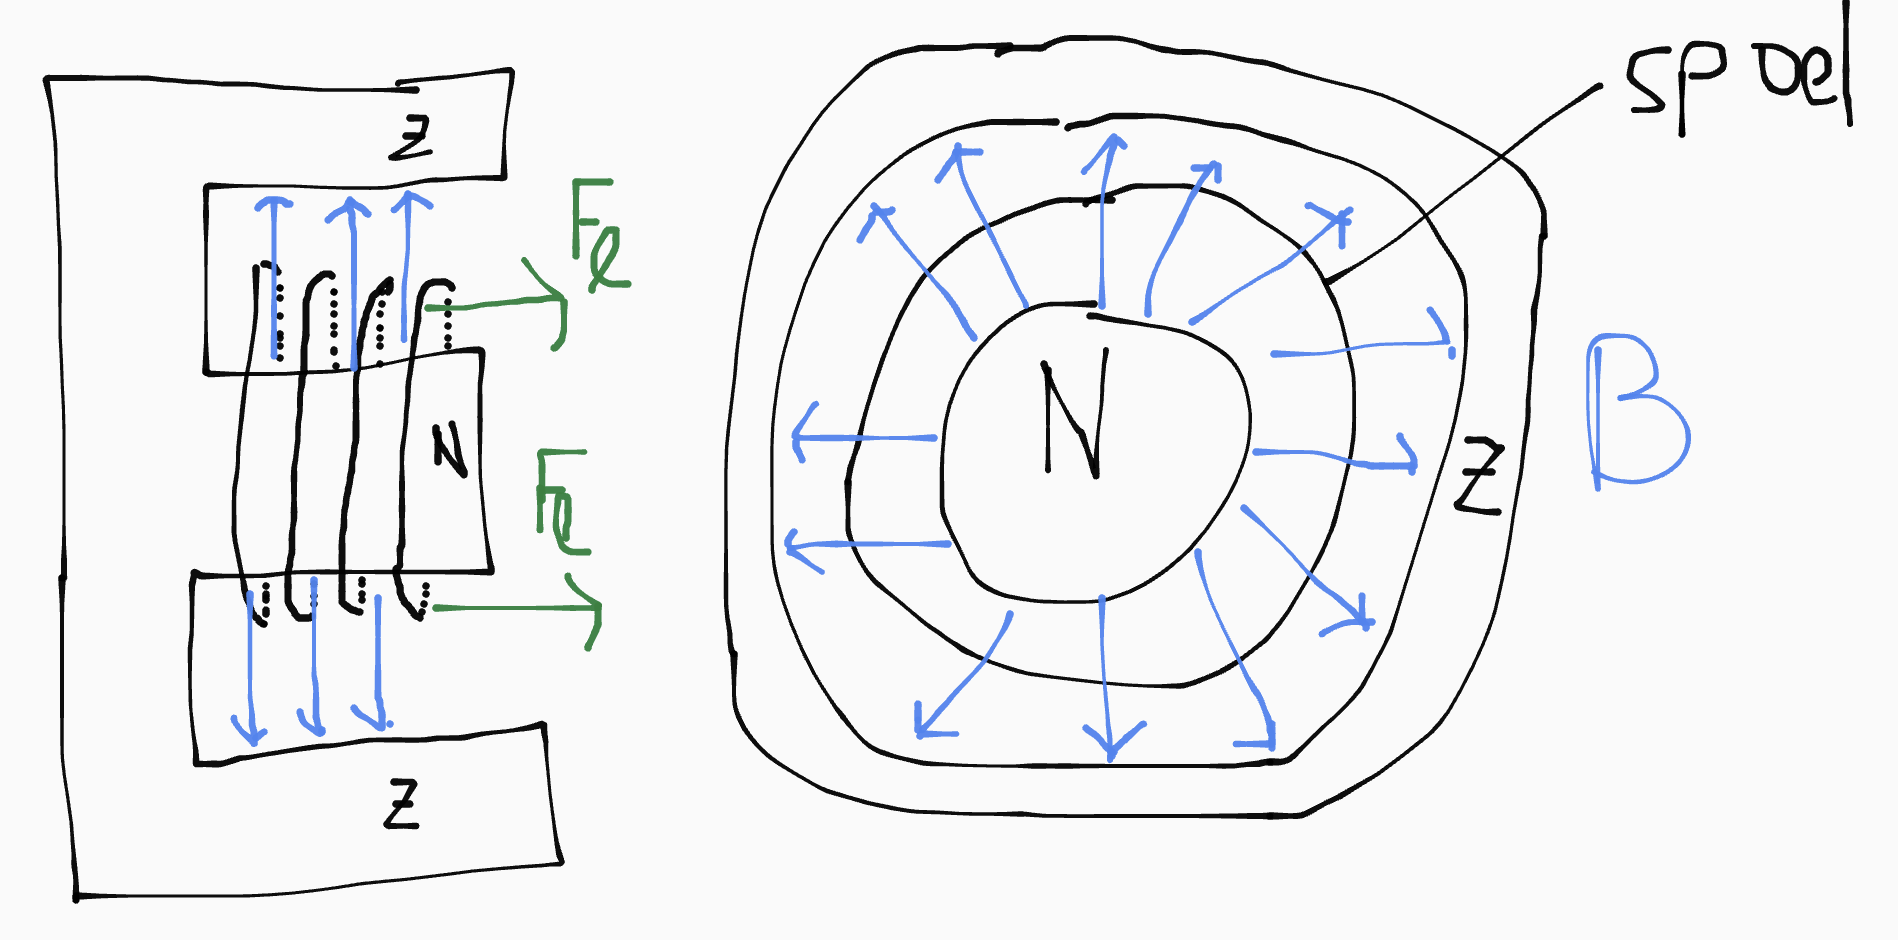 Z
Fl
N
Fl
Z
spoel
N
B
Z